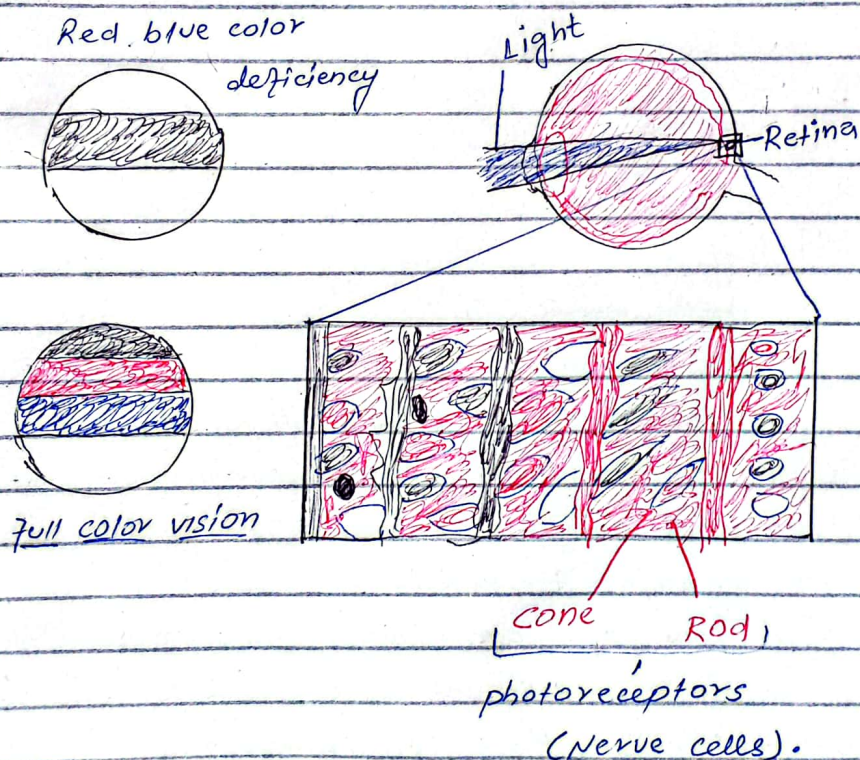 Red. blue color
deficiency
Light
Retina
Full color vision
Cone
Rod
photoreceptors
(Nerve cells).